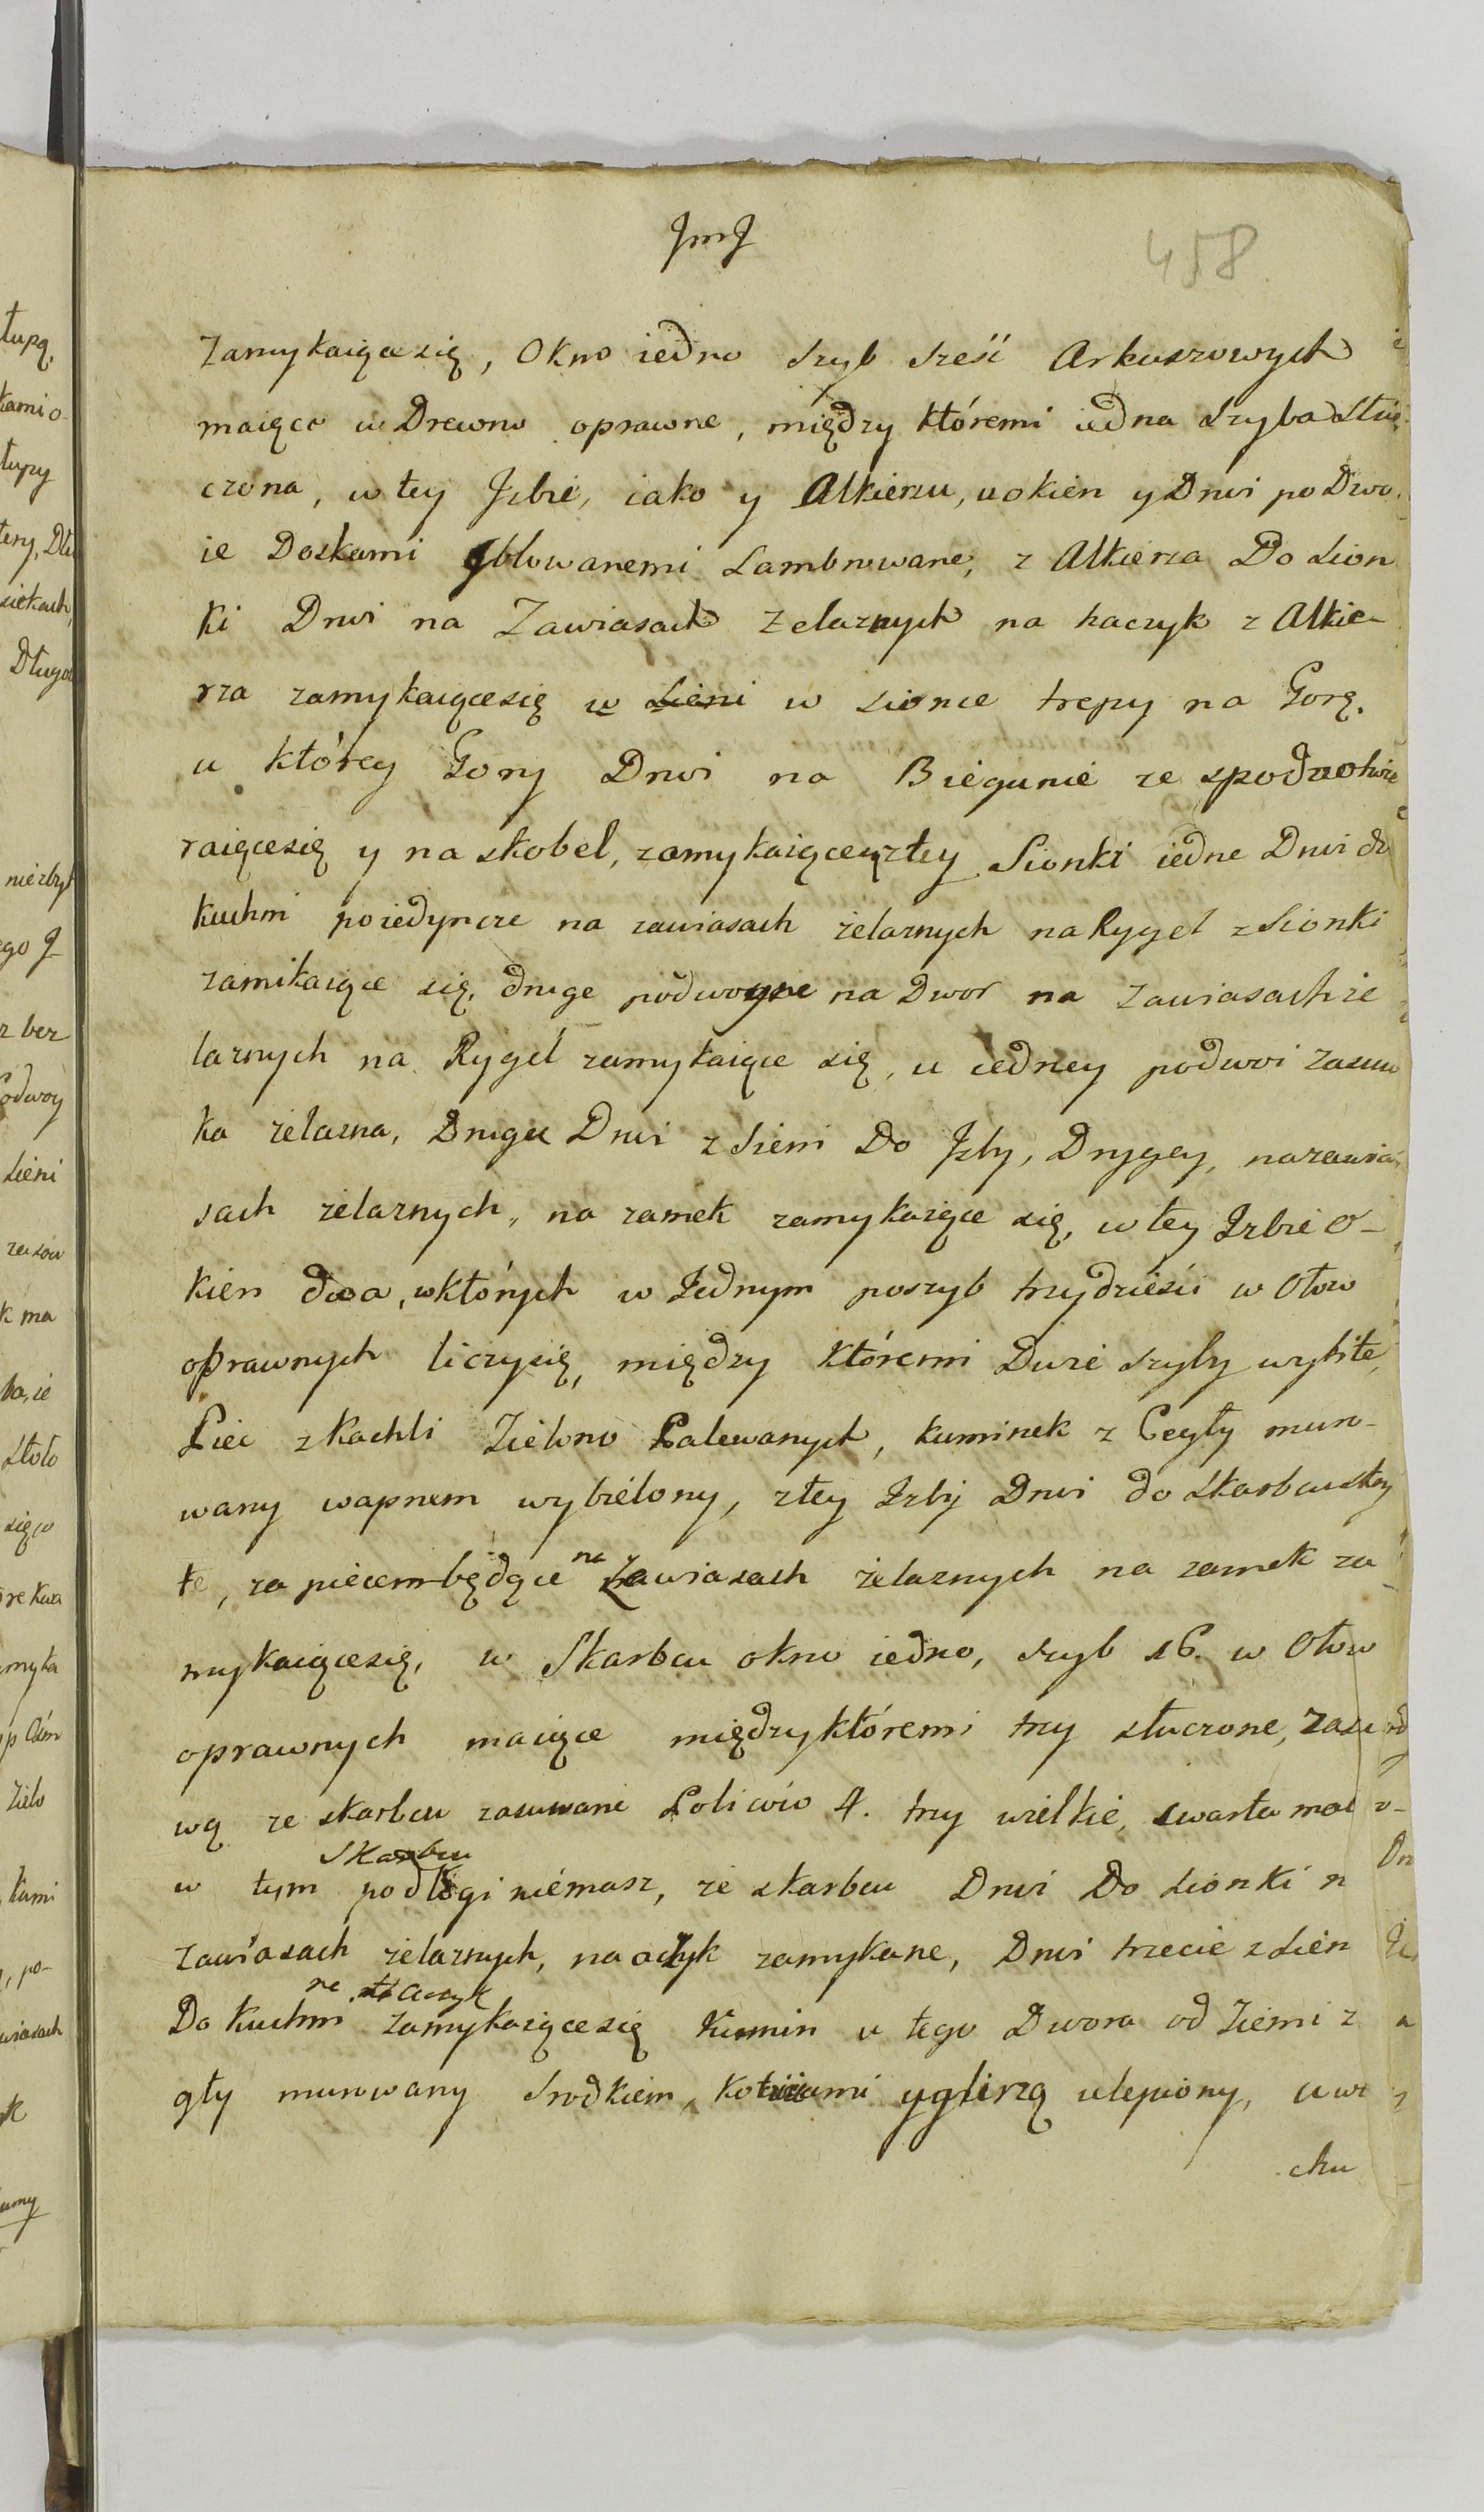 JmJ
458
zamykaiące się, Okno iedno szyb sześć Arkuszowych
maiące w Drewno oprawne, między któremi iedna szyba stłu-
czona, w tey Jzbie, iako y Alkierzu, u okien y Drwi po Dwo-
ie Doskami Heblowanemi Lambrowane, z Alkierza Do sion
ki Drwi na Zawiasach Zelaznych na haczyk z Alkie-
rza zamykaiące się w sieni w sionce trepy na Gorę,
u którey Gory Drwi na Biegunie ze spodu otwie
raiące się y na skobel, zamykaiące z tey Sionki iedne Drwi do
kuchni poiedyncze na zawiasach zelaznych na Rygel z Sionki
zamikaiące się, druge podwoyne na Dwor na zawiasach ze
laznych na Rygel zamykaiące się, u iedney podwoi zasuw
ka zelazna, Drugie Drwi z Sieni Do Jzby, Drygey, na zawia-
sach zelaznych, na zamek zamykaiące się, w tey Jzbie O-
kien dwa, w których w Jednym po szyb trzydzieści w Ołow
oprawnych liczy się, między któremi Dwie szyby wybite,
Piec z Kachli Zielono Palewanych, kuminek z Cegły muro-
wany wapnem wybielony, z tey Jzby Drwi do Skarbcu stoy
te, za piecem będące na Zawiasach zelaznych na zamek za
mykaiące się, w Skarbcu okno iedno, szyb 16. w Ołow
oprawnych maiące między któremi trzy stłuczone, zasu
wą ze skarbcu zasuwane Policów 4. trzy wielkie, czwarta mał
Skarbcu
w tym podłogi niemasz, ze skarbcu Drwi Do sionki n
zawiasach zelaznych, na aczyk zamykane, Drwi trzecie z sien
na aczyk
Do Kuchni zamykaiące się Kumin u tego Dwora od ziemi z
gły murowany Srodkiem, kołkami y gliną ulepiony, u wi
chu